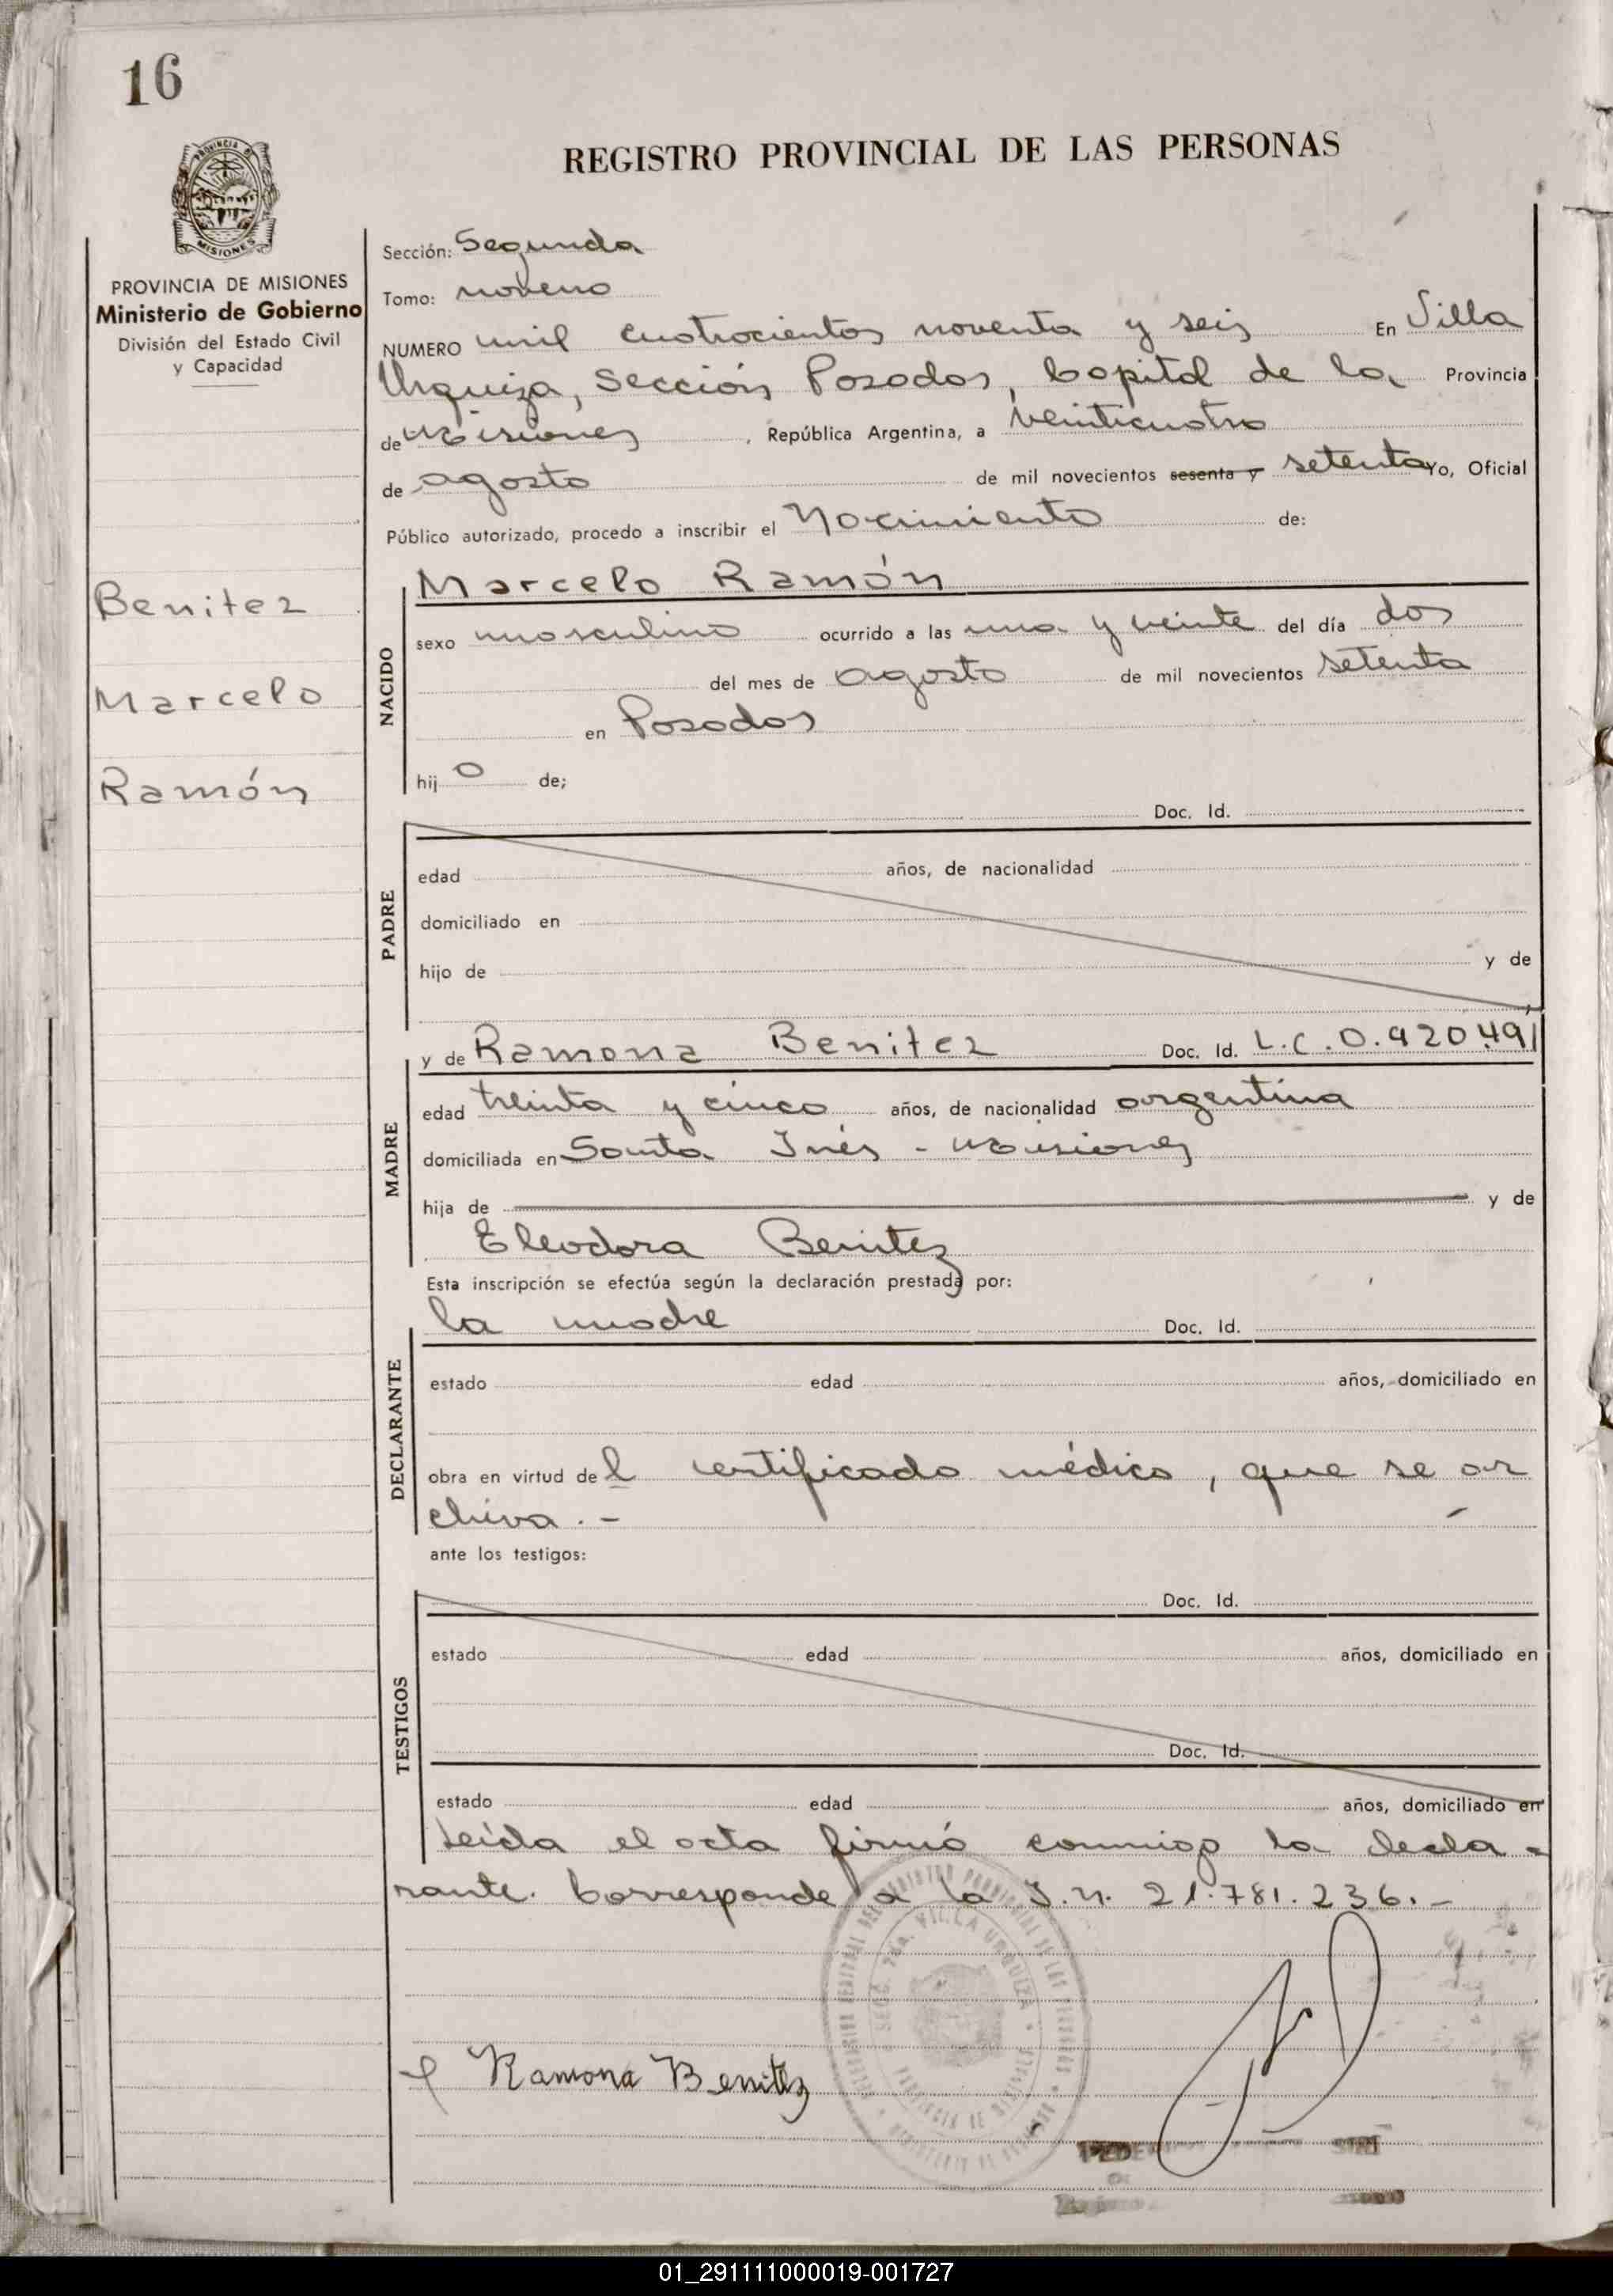 16
REGISTRO PROVINCIAL DE LAS PERSONAS
MISIONES
PROVINCIA DE MISIONES
Ministerio de Gobierno
División del Estado Civil
y Capacidad
Benitez
Marcelo
Ramón
Sección: Segunda
Tomo: noveno
NUMERO mil cuatrocientos noventa y seis En Villa
Urquiza, Sección Posadas, Capital de la Provincia
de Misiones, República Argentina, a veinticuatro
de agosto de mil novecientos sesenta y setenta Yo, Oficial
Público autorizado, procedo a inscribir el Nacimiento de:
NACIDO
Marcelo Ramón
sexo masculino ocurrido a las una y veinte del día dos
del mes de agosto de mil novecientos setenta
en Posadas
hij o de;
PADRE
Doc. Id.
edad años, de nacionalidad
domiciliado en
hijo de y de
MADRE
y de Ramona Benitez Doc. Id. L.C. 0.920.491
edad treinta y cinco años, de nacionalidad argentina
domiciliada en Santa Inés - Misiones
hija de y de
Eleodora Benitez
Esta inscripción se efectúa según la declaración prestada por:
DECLARANTE
la madre Doc. Id.
estado edad años, domiciliado en
obra en virtud del certificado médico, que se ar
chiva. -
ante los testigos:
TESTIGOS
Doc. Id.
estado edad años, domiciliado en
Doc. Id.
estado edad años, domiciliado en
Leída el acta firmó conmigo la decla-
rante. Corresponde a la I.N. 21.781.236.-
VILLA URQUIZA
Ramona Benitez
01_291111000019-001727